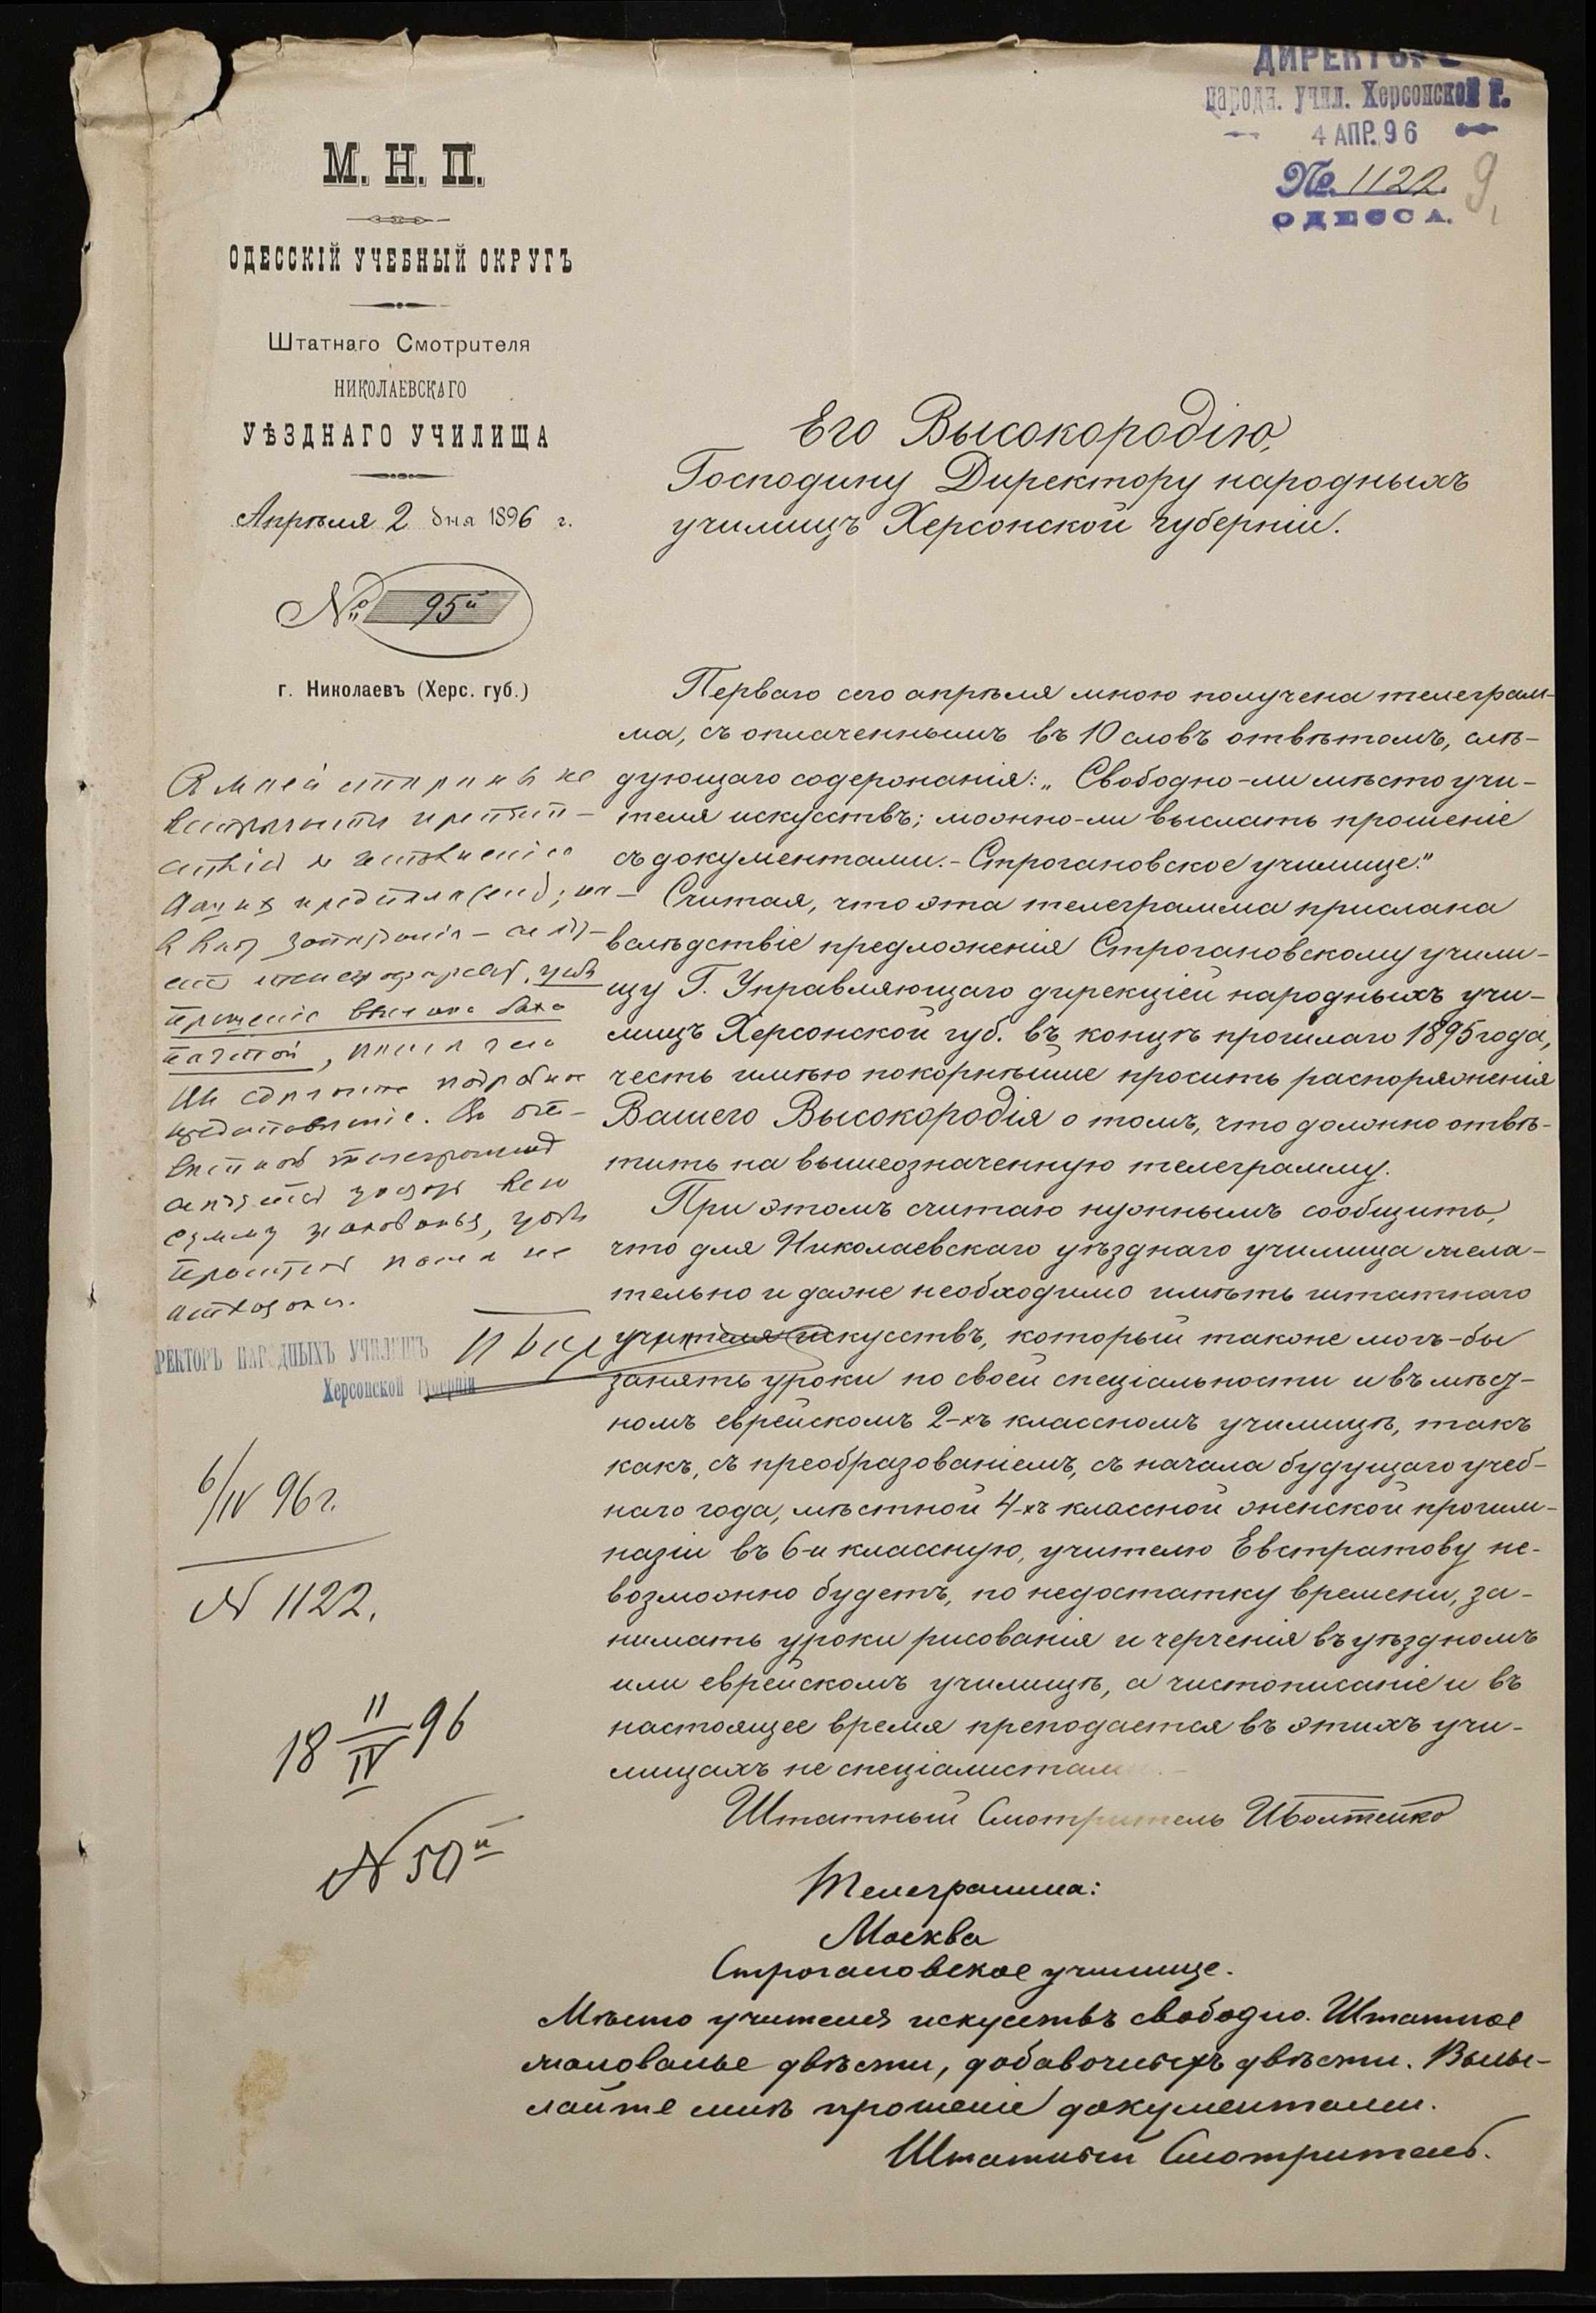 ДИРЕКТОРЪ
народн. учил. Херсонской г.
4 АПР. 96
№ 1122.
9
ОДЕССА.
М. Н. П.
ОДЕССКІЙ УЧЕБНЫЙ ОКРУГЪ
Штатнаго Смотрителя
НИКОЛАЕВСКАГО
УѢЗДНАГО УЧИЛИЩА
Апрѣля 2 дня 1896 г.
№ 95й
г. Николаевъ (Херс. губ.)
Его Высокородію,
Господину Директору народныхъ
училищъ Херсонской губерніи.
Перваго сего апрѣля мною получена телеграм-
ма, съ оплаченнымъ въ 10 словъ отвѣтомъ, слѣ-
дующаго содержанія: „Свободно-ли мѣсто учи-
теля искусствъ; можно-ли выслать прошеніе
съ документами.- Строгановское училище."
Считая, что эта телеграмма прислана
вслѣдствіе предложенія Строгановскому учили-
щу Г. Управляющаго дирекціей народныхъ учи-
лищъ Херсонской губ. въ концѣ прошлаго 1895 года,
честь имѣю покорнѣйше просить распоряженія
Вашего Высокородія о томъ, что должно отвѣ-
тить на вышеозначенную телеграмму.
При этомъ считаю нужнымъ сообщить,
что для Николаевскаго уѣзднаго училища жела-
тельно и даже необходимо имѣть штатнаго
учителя искусствъ, который также могъ-бы
занять уроки по своей спеціальности и въ мѣст-
номъ еврейскомъ 2-хъ классномъ училищѣ, такъ
какъ, съ преобразованіемъ, съ начала будущаго учеб-
наго года, мѣстной 4-хъ классной женской прогим-
назіи въ 6-и классную, учителю Евстратову не-
возможно будетъ, по недостатку времени, за-
нимать уроки рисованія и черченія въ уѣздномъ
или еврейскомъ училищѣ, а чистописаніе и въ
настоящее время преподается въ этихъ учи-
лищахъ не спеціалистами.
Штатный Смотритель И Болтенко
съ моей стороны не
встрѣчается препят-
ствія
прошеніе выслано было
почтой,
телеграммой
сумму жалованья,
РЕКТОРЪ НАРОДНЫХЪ УЧИЛИЩЪ
Херсонской губерніи
6/IV 96 г.
N 1122.
18 11/IV 96
N 50й
Телеграмма:
Москва
Строгановское училище.
Мѣсто учителя искусствъ свободно. Штатное
жалованье двѣсти, добавочныхъ двѣсти. Высы-
лайте мнѣ прошеніе документами.
Штатный Смотритель.